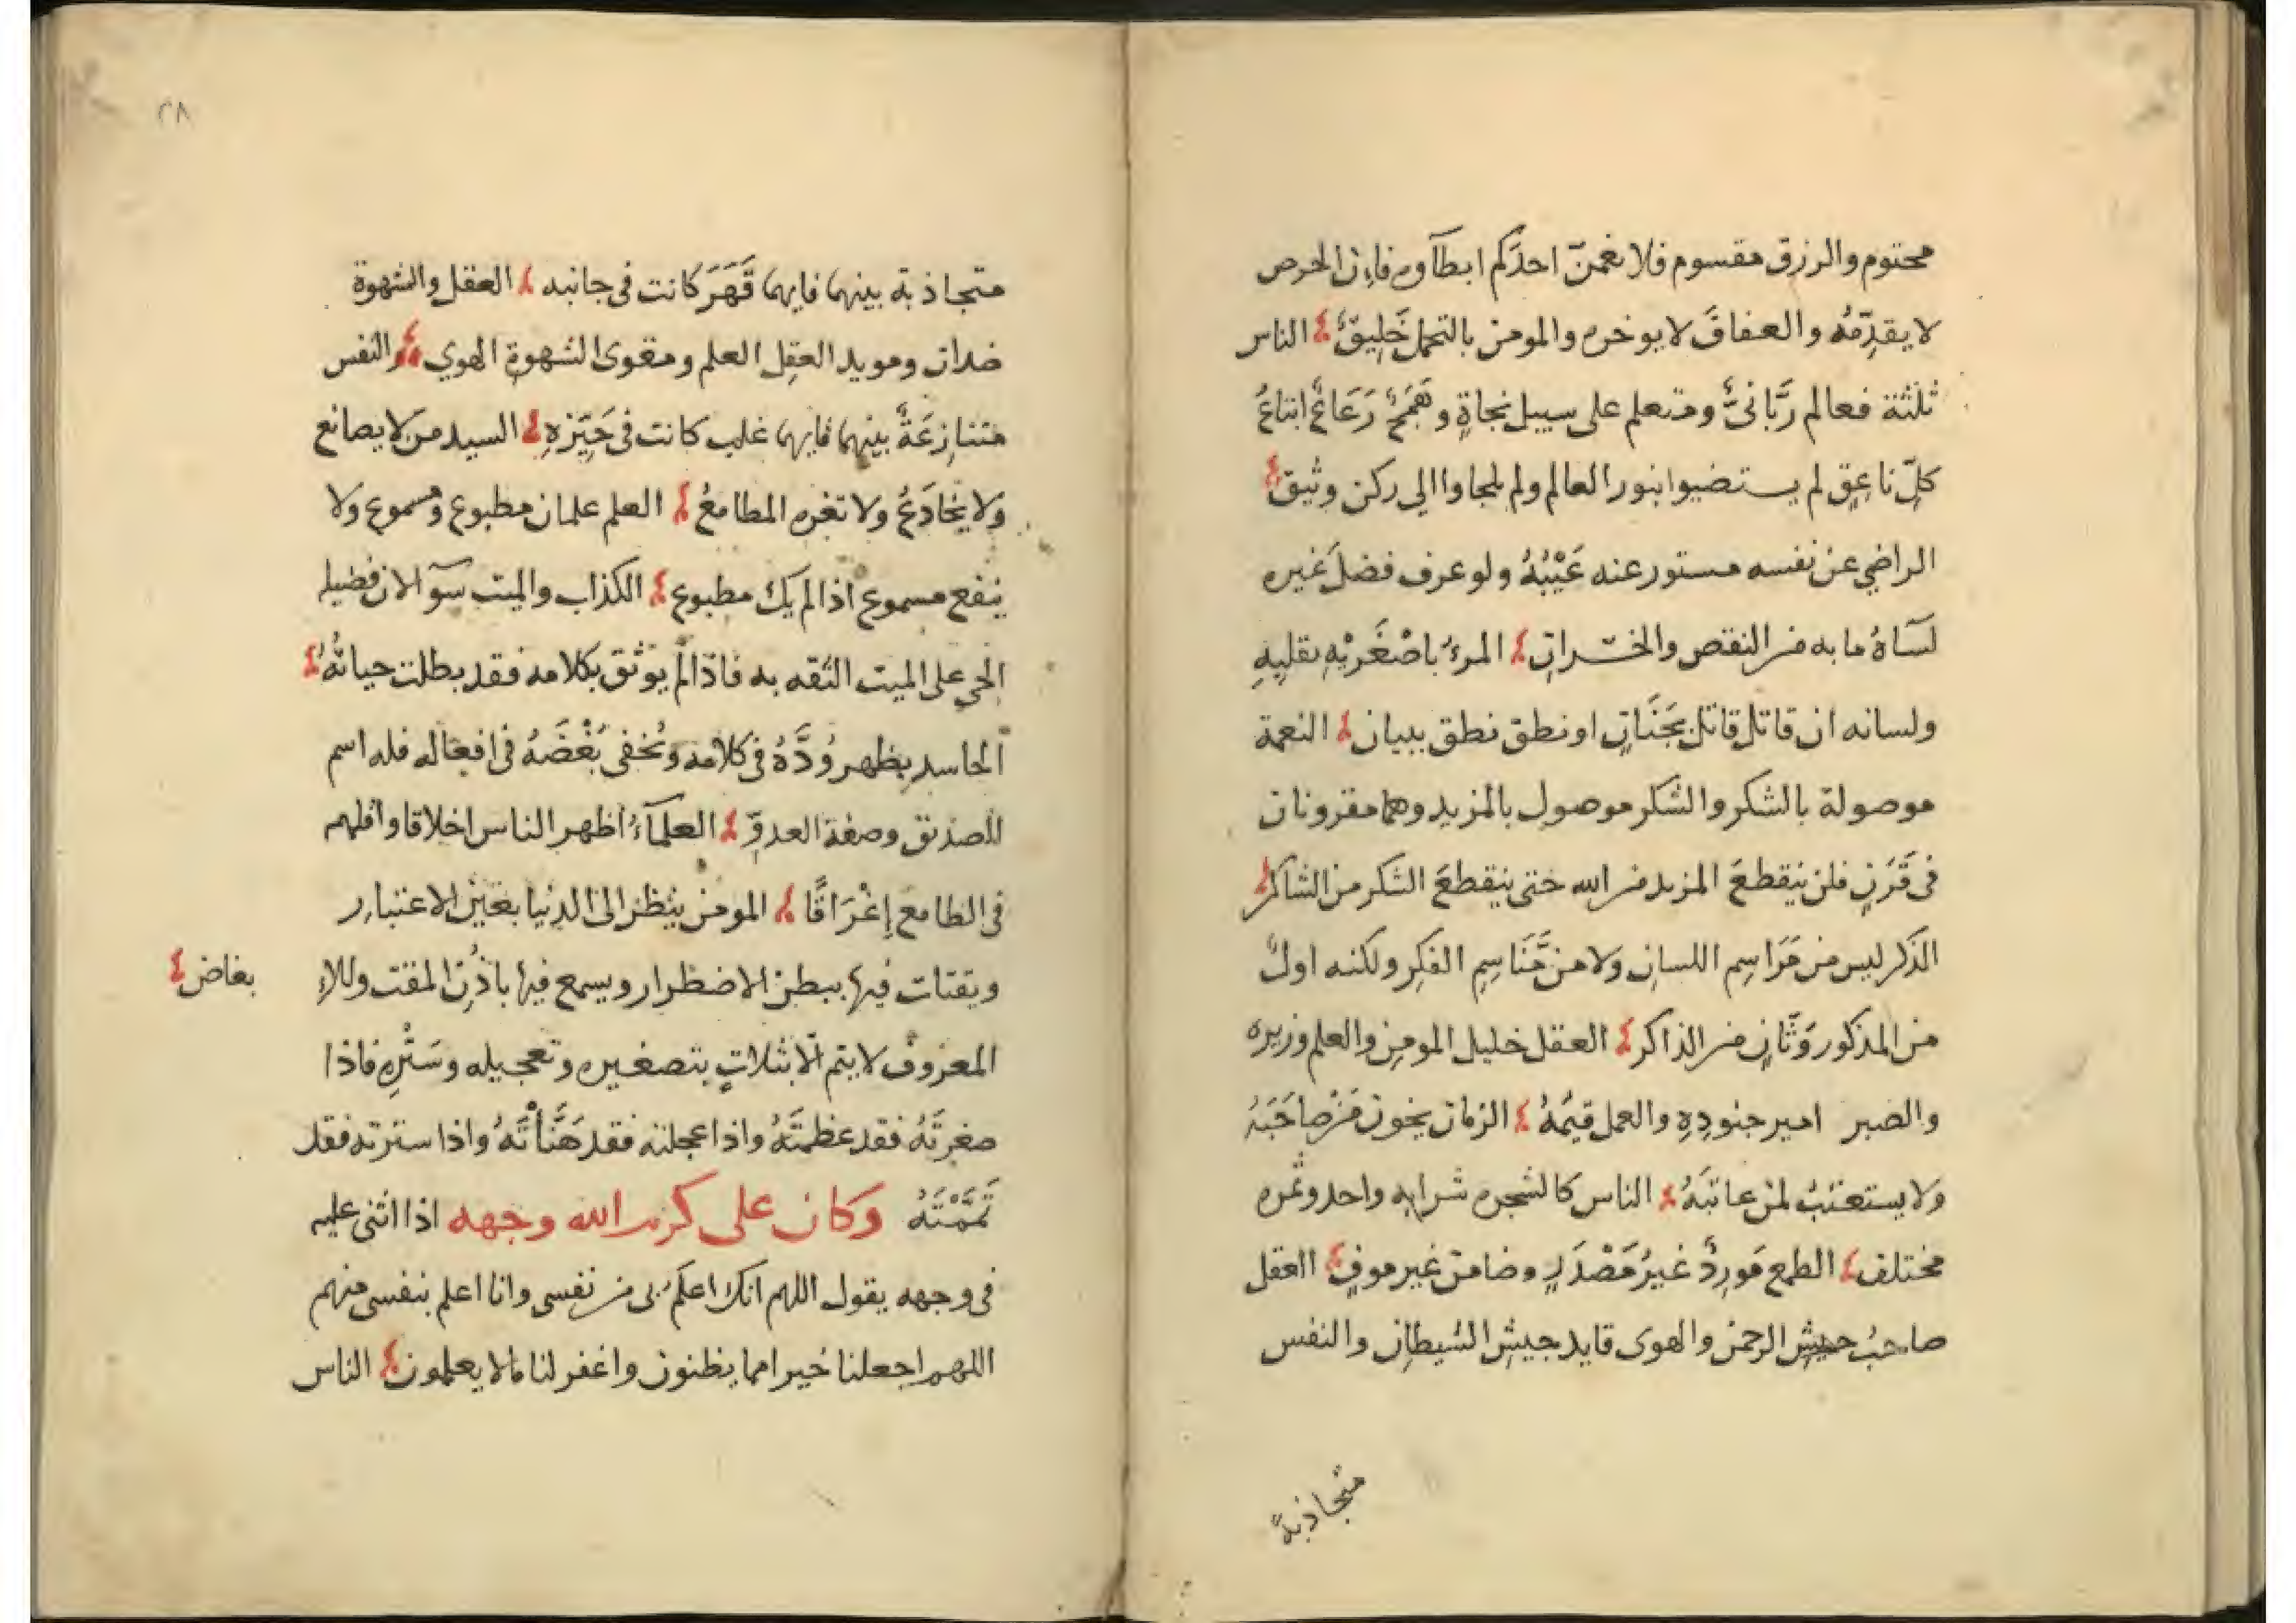 محتوم والرزق مقسوم فلا يغمنّ احدَكم ابطآوه فاِن الحرص
لا يقدِّمُه والعفافَ لا يوخره والمومن بالتحمل خَلِيقٌ الناس
ثلثة فعالم رَّبانيٌّ ومتعلم على سبيل نجاةٍ وهَمَجٌ رَعَاعٌ اتباعُ
كلِّ ناعِقٍ لم يستضيوا بنور العالم ولم يلجاوا الي ركن وثيق
الراضي عن نفسه مستور عنه عَيْبُهُ ولو عرف فضلَ غيره
لسآهُ ما به من النقص والخسرانِ المرءُ باصْغَريْهِ بقلبِهِ
ولسانه ان قاتل قاتل بجَنَانٍ او نطق نطق ببيان النعمة
موصولة بالشكر والشكر موصول بالمزيد وهما مقرونان
فى قَرَنٍ فلن ينقطعَ المزيد من الله حتى ينقطعَ الشكر من الشاكر
الذكر ليس من مَرَاسِم اللسان ولا من مَّنَاسِمِ الفِكر ولكنه اولٌ
من المذكور وَثَانٍ من الذاكر العقل خليل المومن والعلم وزيره
والصبر امير جنودِهِ والعمل قيمُهُ الزمان يخون مَنْ صاحَبَهُ
ولا يستعتبُ لمن عاتبَهُ الناس كالشجره شرابه واحد وثمره
مختلف الطمع مَورِدٌ غيرُ مَصْدَرٍ وضامن غير موفٍ العقل
صاحبُ جيشِ الرحمن والهوى قايد جيشِ الشيطان والنفس
متجاذبةً
٢٨
متجاذبة بينهما فايهما قَهَرَ كانت فى جانبه العقل والشهوة
ضدان ومويد العقِل العلم ومقوى الشهوةِ الهوي والنفس
متنازِعَةٌ بينهما فايهما غلب كانت فى حَيِّزهِ السيد من لا يصانع
ولا يخادَعُ ولا تغره المطامعُ العلم علمان مطبوع ومسموع ولا
ينفع مسموع اذا لم يك مطبوع الكذاب والميت سوآ لان فضيله
الحي على الميت الثقه به فاذا لم يوثق بكلامه فقد بطلت حياتُهُ
الحاسد يظهر وُدَّهُ فى كلامه ويخفى بُغْضَهُ فى افعاله فله اسم
الصديق وصفة العدوّ العلمآءُ اظهر الناس اخلاقا واقلهم
فى الطامع إغْرَاقًا المومن ينظر الى الدنيا بعَيْن الاعتبار
ويقتات فيها ببطن الاضطرار ويسمع فيها باذُن المقت وللاِ
بغاض
المعروف لا يتم الا بثلاثٍ بتصغيره وتعجيله وسَتْرِهِ فاذا
صغرتَهُ فقد عظمتَهُ واذا عجلته فقد هَنَّأتَهُ واذا سترته فقد
تَمَّمْتَهُ وكان على كرم الله وجهه اذا اثنى عليه
فى وجهه يقول اللهم انك اعلمُ بى من نفسى وانا اعلم بنفسى منهم
اللهم اجعلنا خيرا مما يظنون واغفر لنا مالا يعلمون الناس